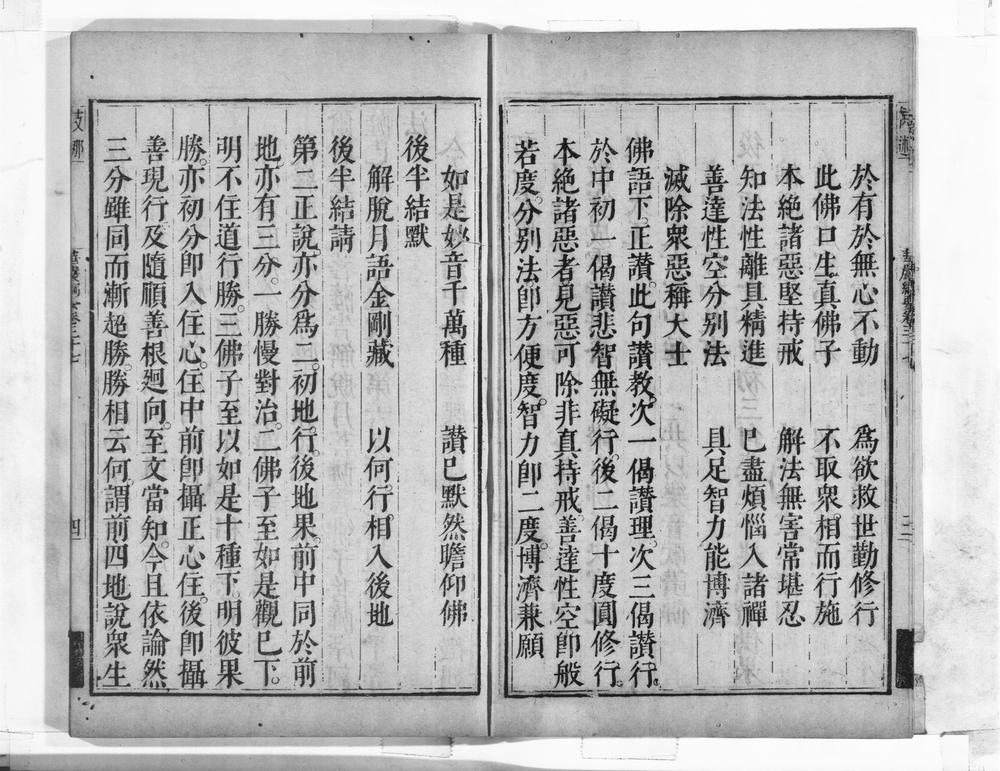 於有於無心不動　為欲救世勤修行
此佛口生真佛子　不取衆相而行施
本絶諸惡堅持戒　解法無害常堪忍
知法性離具精進　已盡煩惱入諸禪
善達性空分别法　具足智力能博濟
滅除衆惡稱大士
佛語下。正讃。此句讃教。次一偈讃理。次三偈讃行。
於中初一偈讃悲智無礙行。後二偈十度圓修行。
本絶諸惡者見惡可除非真持戒。善達性空卽般
若度。分别法卽方便度。智力卽二度。博濟兼願
如是妙音千萬種　讃已默然瞻仰佛
後半結默
解脫月語金剛藏　以何行相入後地
後半結請
第二正說。亦分爲二。初地行。後地果。前中同於前
地。亦有三分。一勝慢對治。二佛子至如是觀已下。
明不住道行勝。三佛子至以如是十種下。明彼果
勝。亦初分卽入住心。住中前卽攝正心住。後卽攝
善現行及隨順善根廻向。至文當知。今且依論然
三分雖同而漸超勝。勝相云何。謂前四地說衆生
四
三